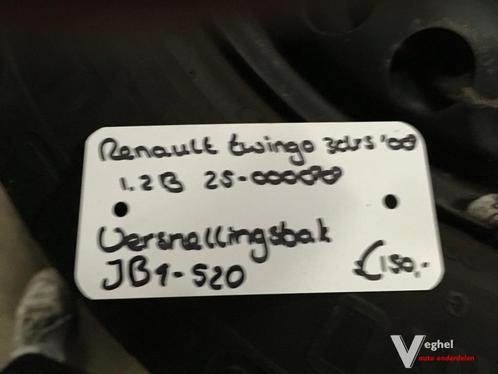 Renault twingo 3drs '00
1.2B 25-000070
Versnellingsbak
JB1-520 €150,-
Veghel
auto onderdelen